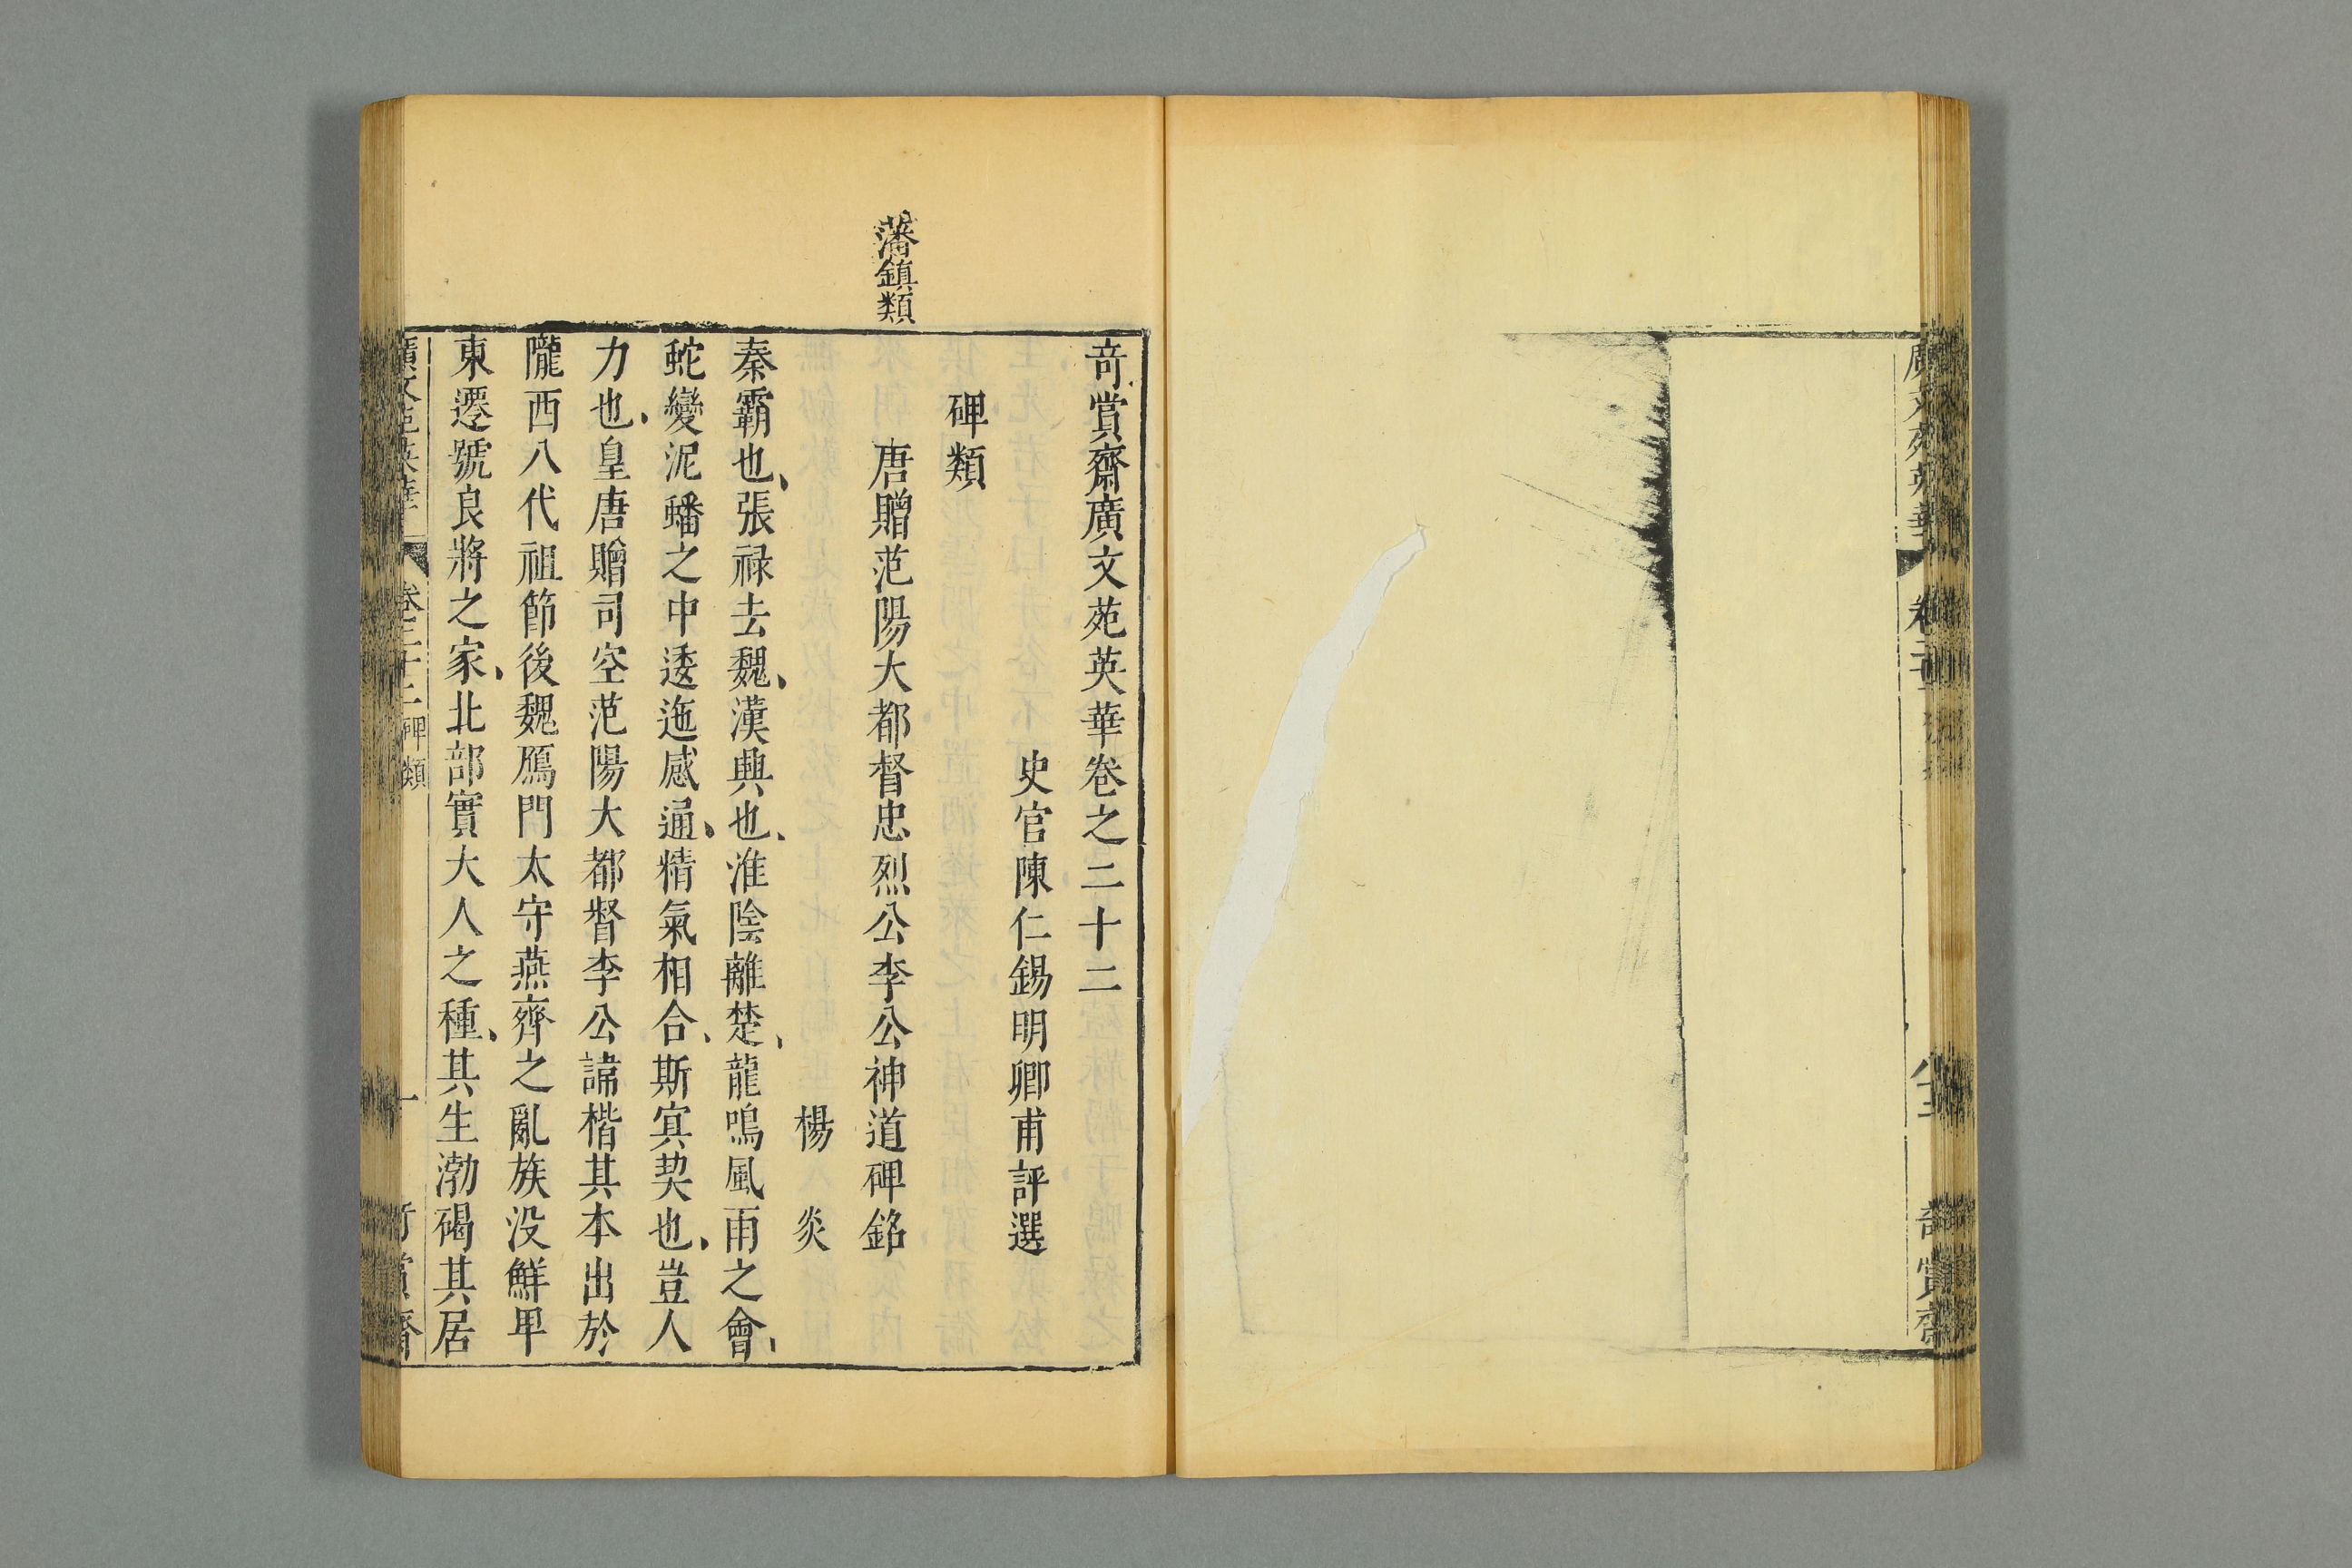 奇賞齋廣文苑英華卷之二十二
史官陳仁錫明卿甫評選
碑類
藩鎮類
唐贈范陽大都督忠烈公李公神道碑銘
楊炎
秦霸也、張禄去魏、漢興也、淮陰離楚、龍鳴風雨之會、
蛇變泥蟠之中逶迤感通、精氣相合、斯㝠契也、豈人
力也、皇唐贈司空范陽大都督李公諱楷其本出於
隴西八代祖節後魏鴈門太守燕齊之亂族没鮮卑
東遷號良將之家、北部實大人之種、其生渤碣其居
廣文苑英華 卷二十二 碑類 一 奇賞齋